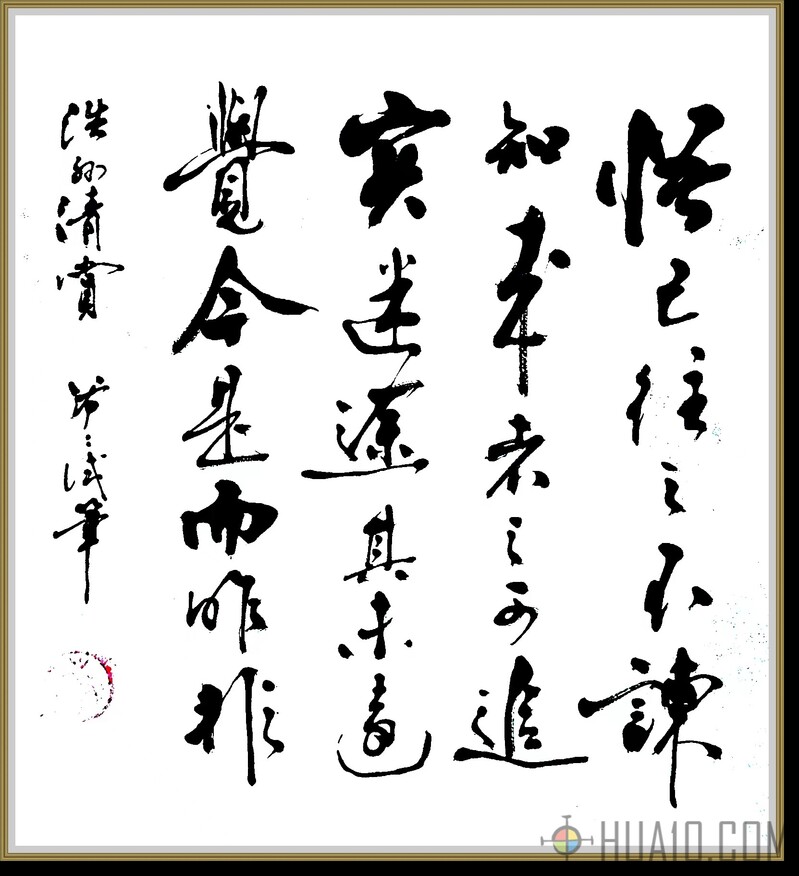 悟已往之不諫
知来者之可追
实迷途其未遠
覺今是而昨非
浩清賞
試筆
HUA10.COM